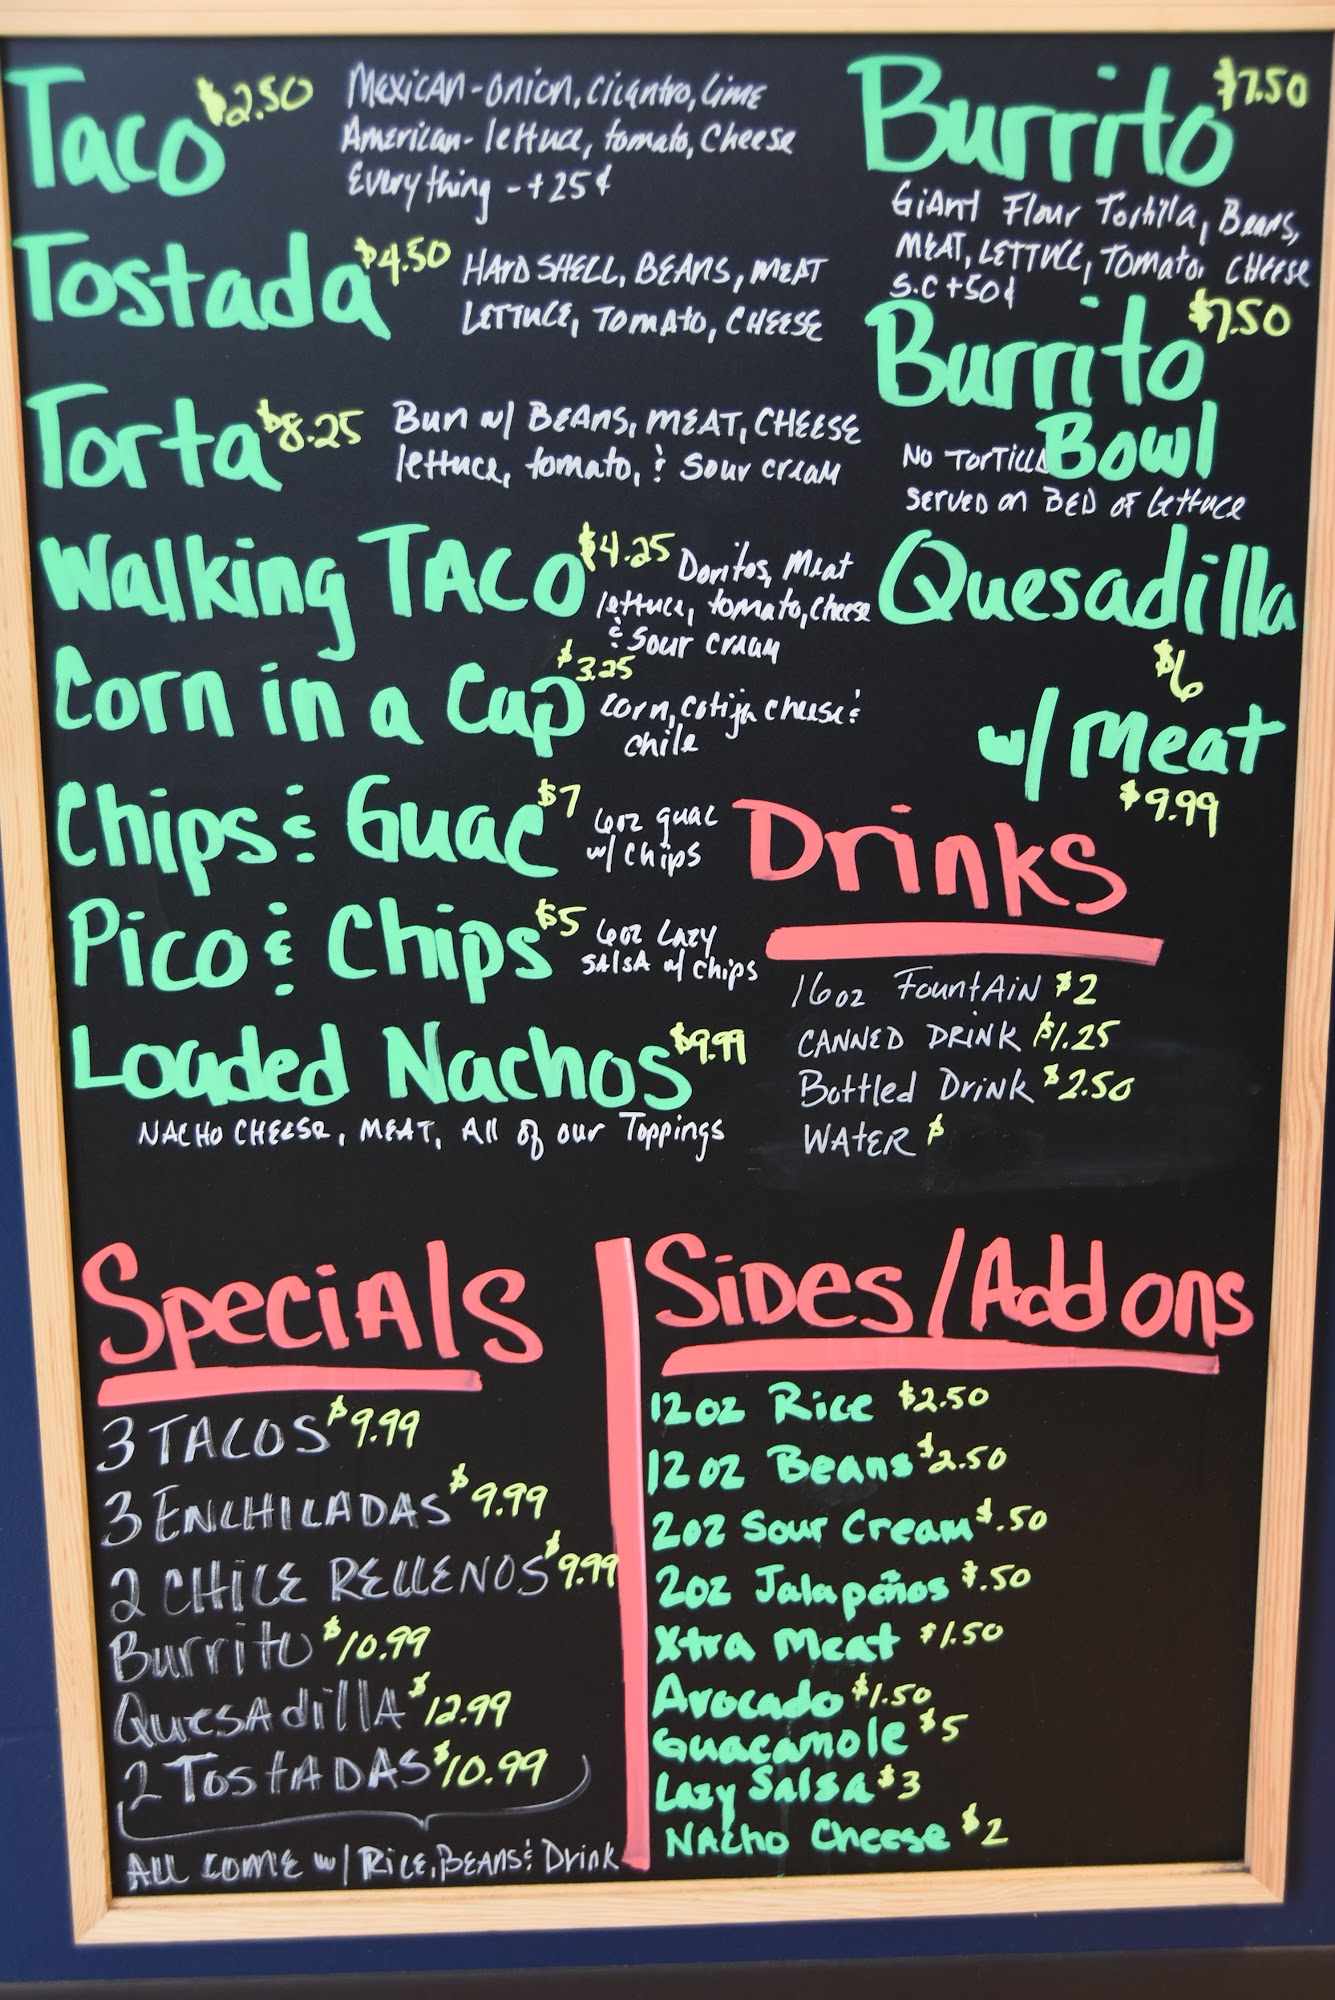 Taco $2.50
Mexican - onion, cilantro, lime
American - lettuce, tomato, cheese
Everything - +25¢
Tostada $4.50
HARD SHELL, BEANS, MEAT
LETTUCE, TOMATO, CHEESE
Torta $8.25
Bun w/ BEANS, MEAT, CHEESE
lettuce, tomato, & sour cream
Walking TACO $4.25
Doritos, Meat
lettuce, tomato, cheese
& sour cream
Corn in a Cup $3.25
corn, cotija cheese &
chile
Chips & Guac $7
6oz guac
w/ chips
Pico & Chips $5
6oz Lazy
SALSA w/ chips
Loaded Nachos $9.99
NACHO CHEESE, MEAT, All of our Toppings
Burrito $7.50
GIANT Flour Tortilla, Beans,
MEAT, LETTUCE, Tomato, CHEESE
S.C +50¢
Burrito $7.50
Bowl
NO TORTILLA
SERVED on BED OF Lettuce
Quesadilla
$6
w/ Meat
$9.99
Drinks
16oz FountAiN $2
CANNED DRINK $1.25
Bottled Drink $2.50
WATER $
Specials
3 TACOS $9.99
3 ENCHILADAS $9.99
2 CHILE RELLENOS $9.99
Burrito $10.99
QuesAdillA $12.99
2 TOSTADAS $10.99
ALL COME w/ RICE, BEANS & Drink
SIDES/Add ons
12oz Rice $2.50
12oz Beans $2.50
2oz Sour Cream $.50
2oz Jalapeños $.50
Xtra Meat $1.50
Avocado $1.50
Guacamole $5
Lazy Salsa $3
NAcho Cheese $2